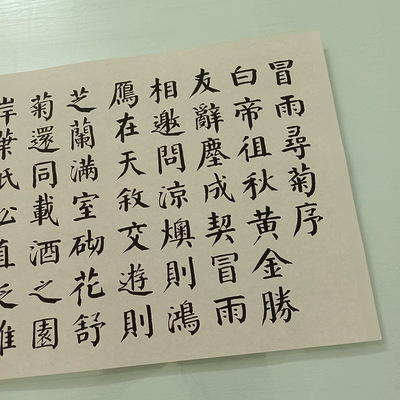 冒雨尋菊序
白帝徂秋黄金勝
友辭塵成契冒雨
相邀問凉燠則鴻
鴈在天敘交遊則
芝蘭滿室砌花舒
菊還同載酒之園
岸葉